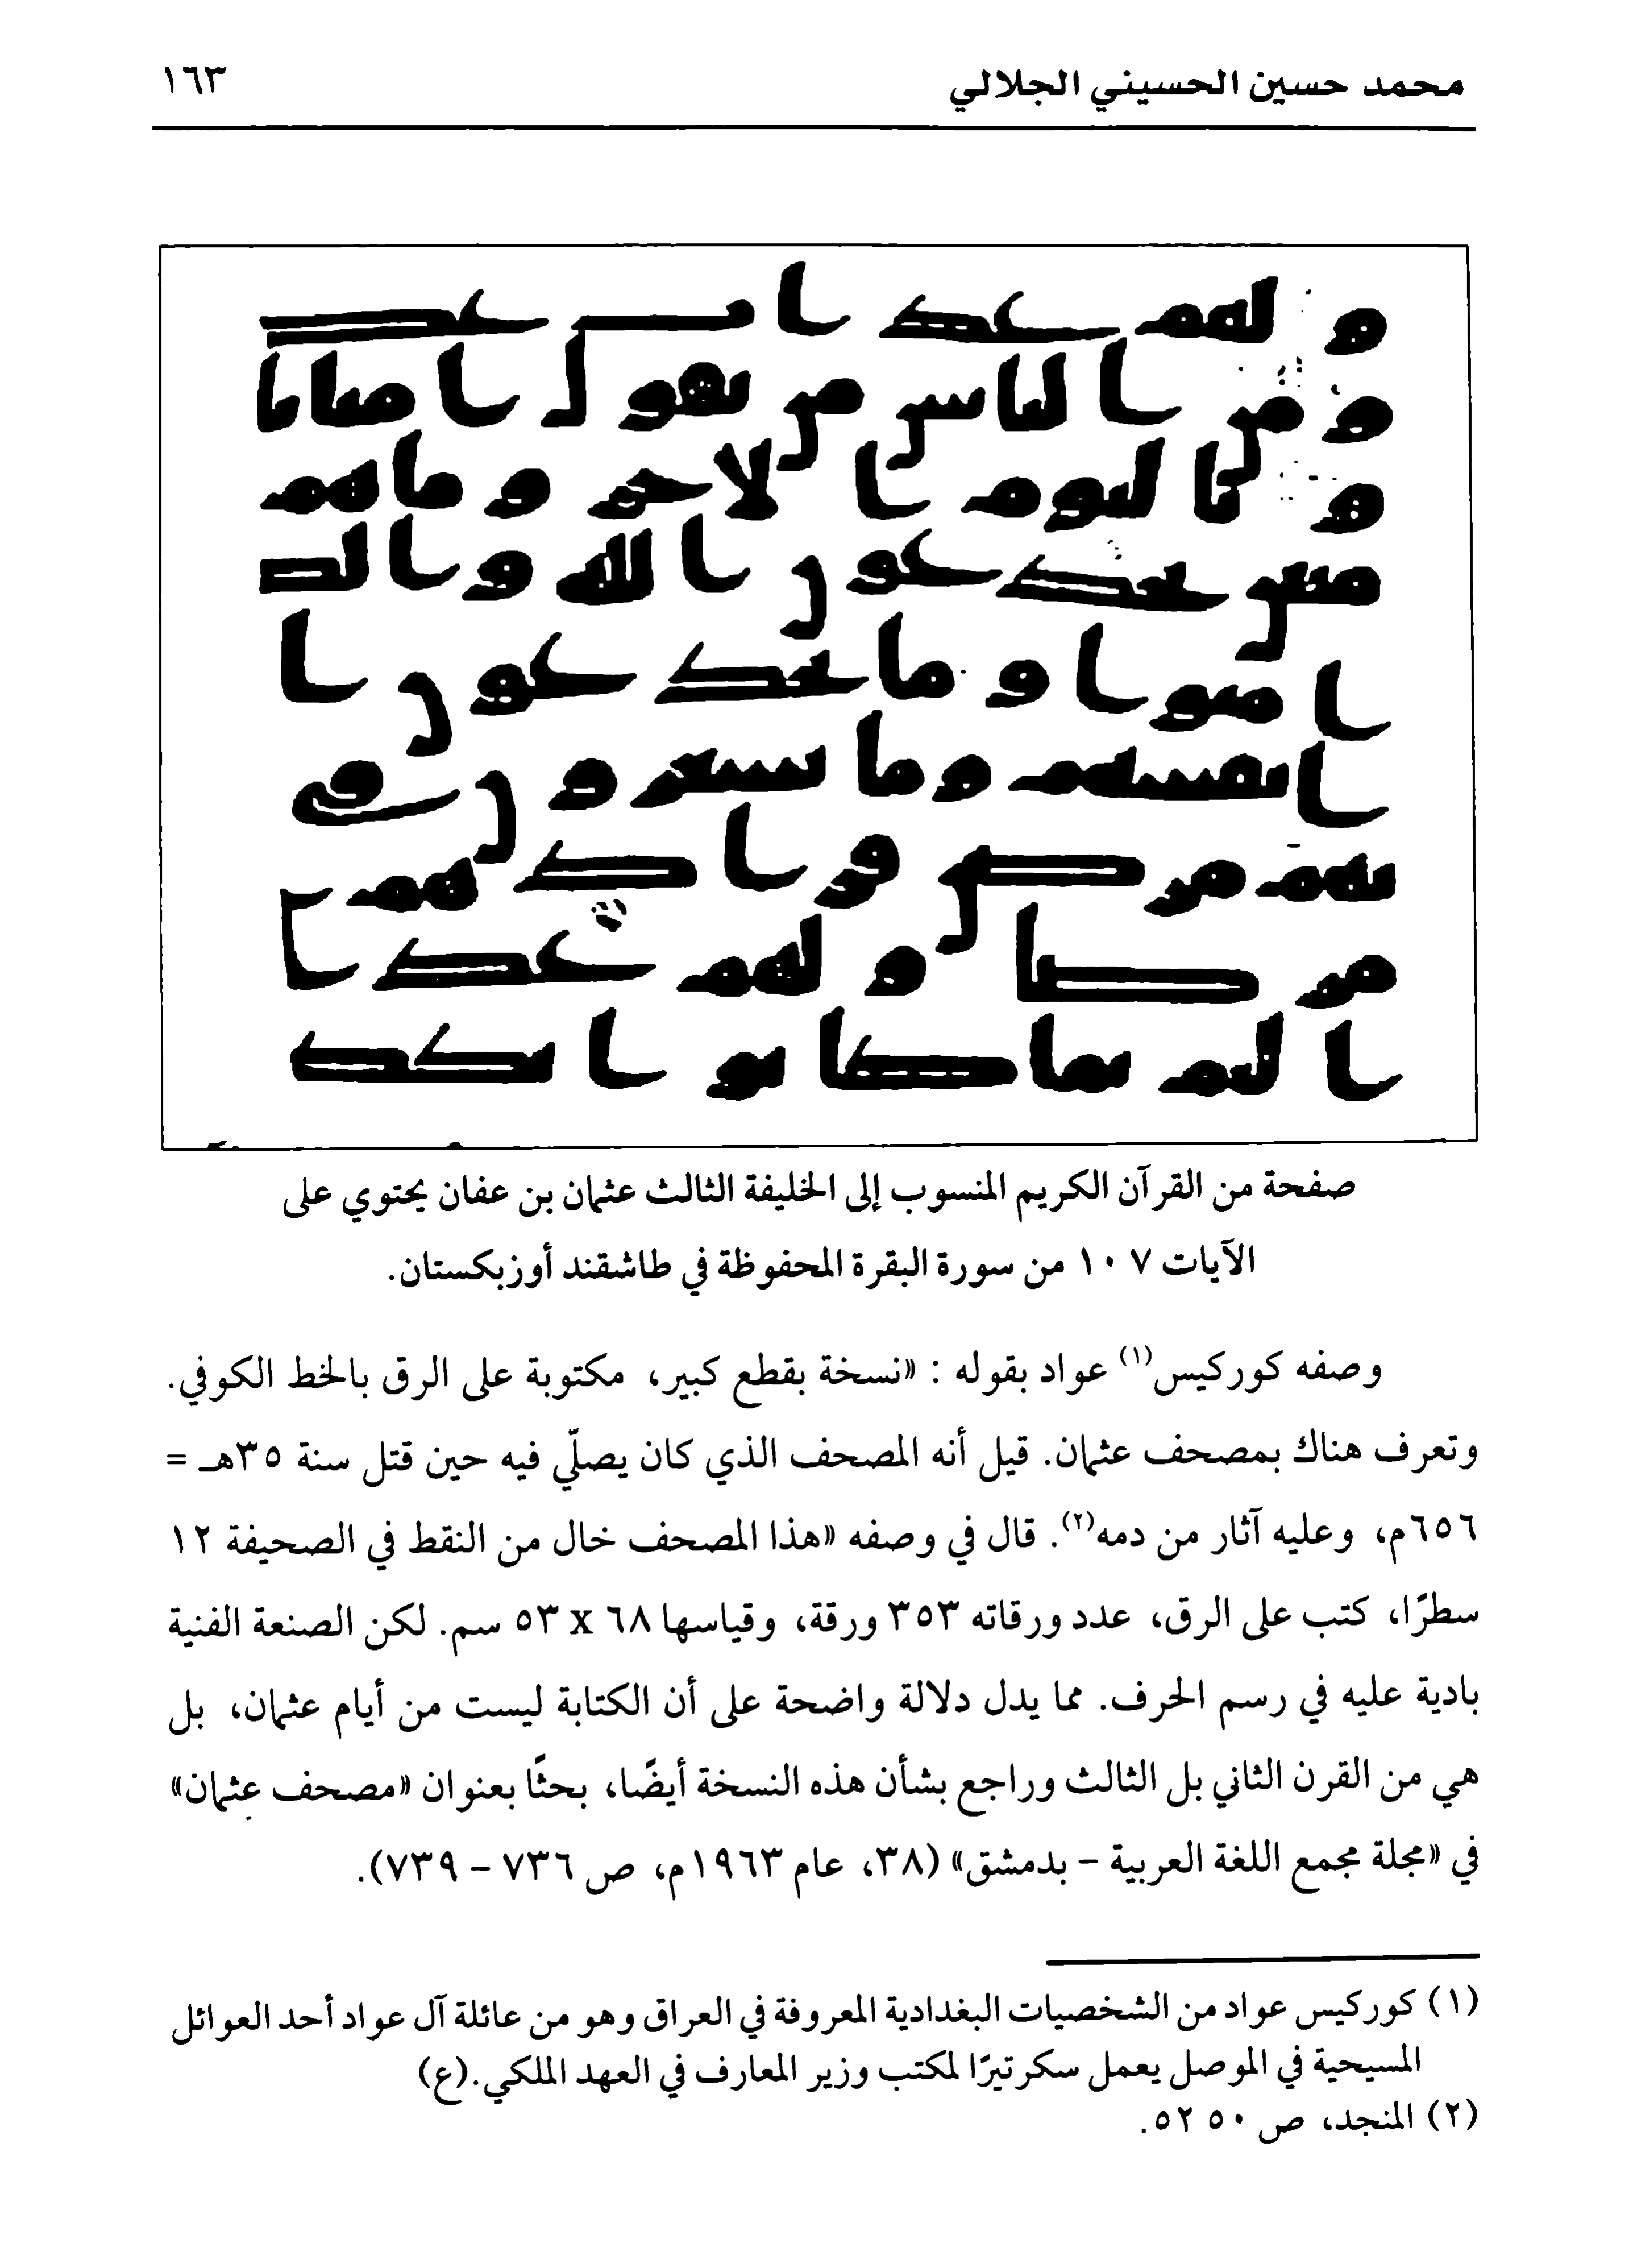 محمد حسين الحسيني الجلالي
١٦٣
و لهم عدا ب عط
و من ا لناس من يقو ل ا منا با
و با ليوم ا لاحر و ما هم
صفحة من القرآن الكريم المنسوب إلى الخليفة الثالث عثمان بن عفان يحتوي على
الآيات ٧ ١٠ من سورة البقرة المحفوظة في طاشقند أوزبكستان.
وصفه كوركيس(١) عواد بقوله : «نسخة بقطع كبير، مكتوبة على الرق بالخط الكوفي.
وتعرف هناك بمصحف عثمان. قيل أنه المصحف الذي كان يصلّي فيه حين قتل سنة ٣٥هـ =
٦٥٦م، وعليه آثار من دمه(٢). قال في وصفه «هذا المصحف خال من النقط في الصحيفة ١٢
سطرًا، كتب على الرق، عدد ورقاته ٣٥٣ ورقة، وقياسها ٦٨ x ٥٣ سم. لكن الصنعة الفنية
بادية عليه في رسم الحرف. مما يدل دلالة واضحة على أن الكتابة ليست من أيام عثمان، بل
هي من القرن الثاني بل الثالث وراجع بشأن هذه النسخة أيضًا، بحثًا بعنوان «مصحف عثمان»
في «مجلة مجمع اللغة العربية – بدمشق» (٣٨، عام ١٩٦٣م، ص ٧٣٦ – ٧٣٩).
(١) كوركيس عواد من الشخصيات البغدادية المعروفة في العراق وهو من عائلة آل عواد أحد العوائل
المسيحية في الموصل يعمل سكرتيرًا لمكتب وزير المعارف في العهد الملكي.(ع)
(٢) المنجد، ص ٥٠ ٥٢.